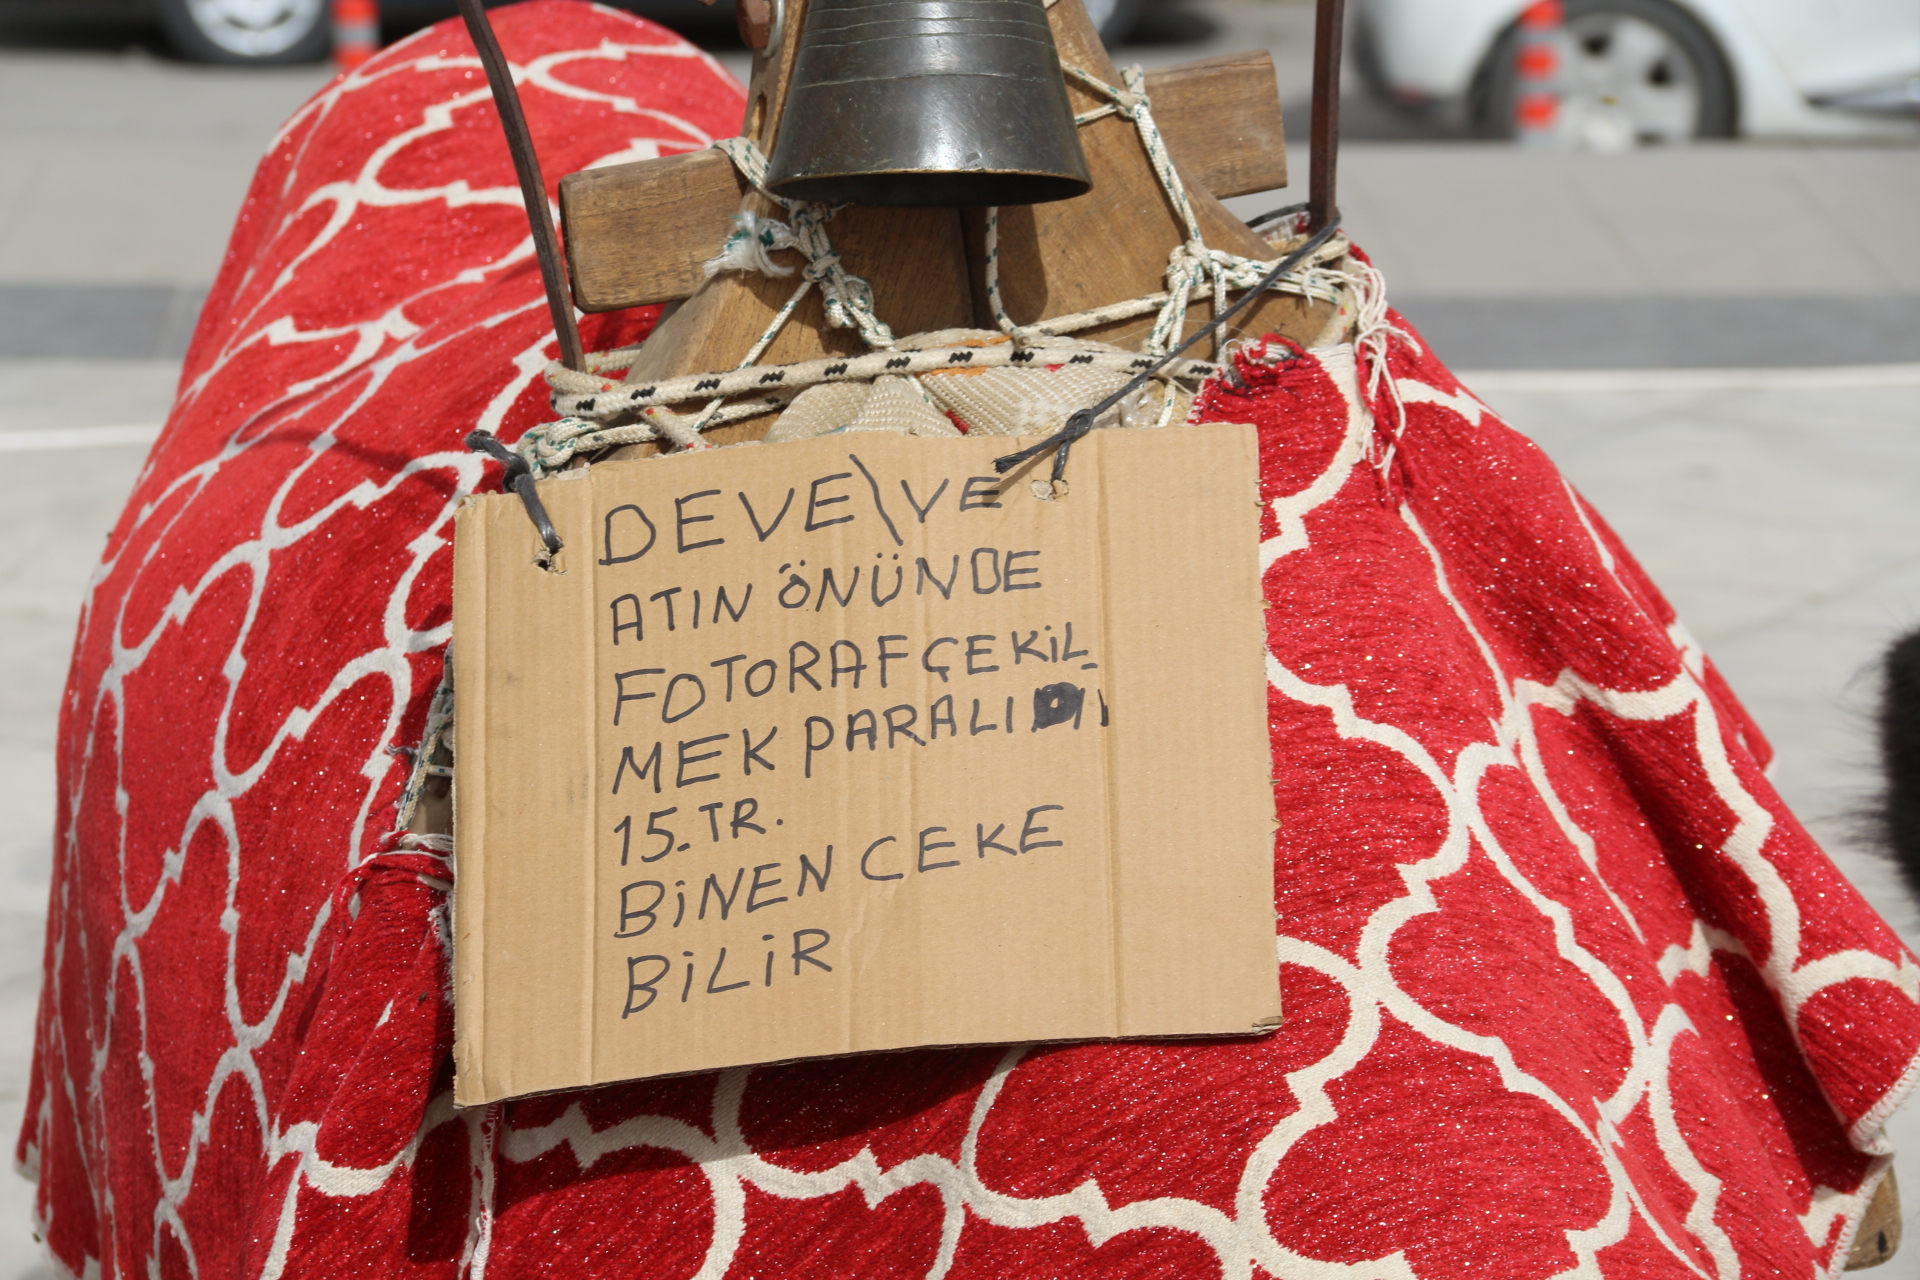 DEVE\VE
ATIN ÖNÜNDE
FOTORAF ÇEKİL
MEK PARALI
15.TR.
BİNEN CEKE
BİLİR